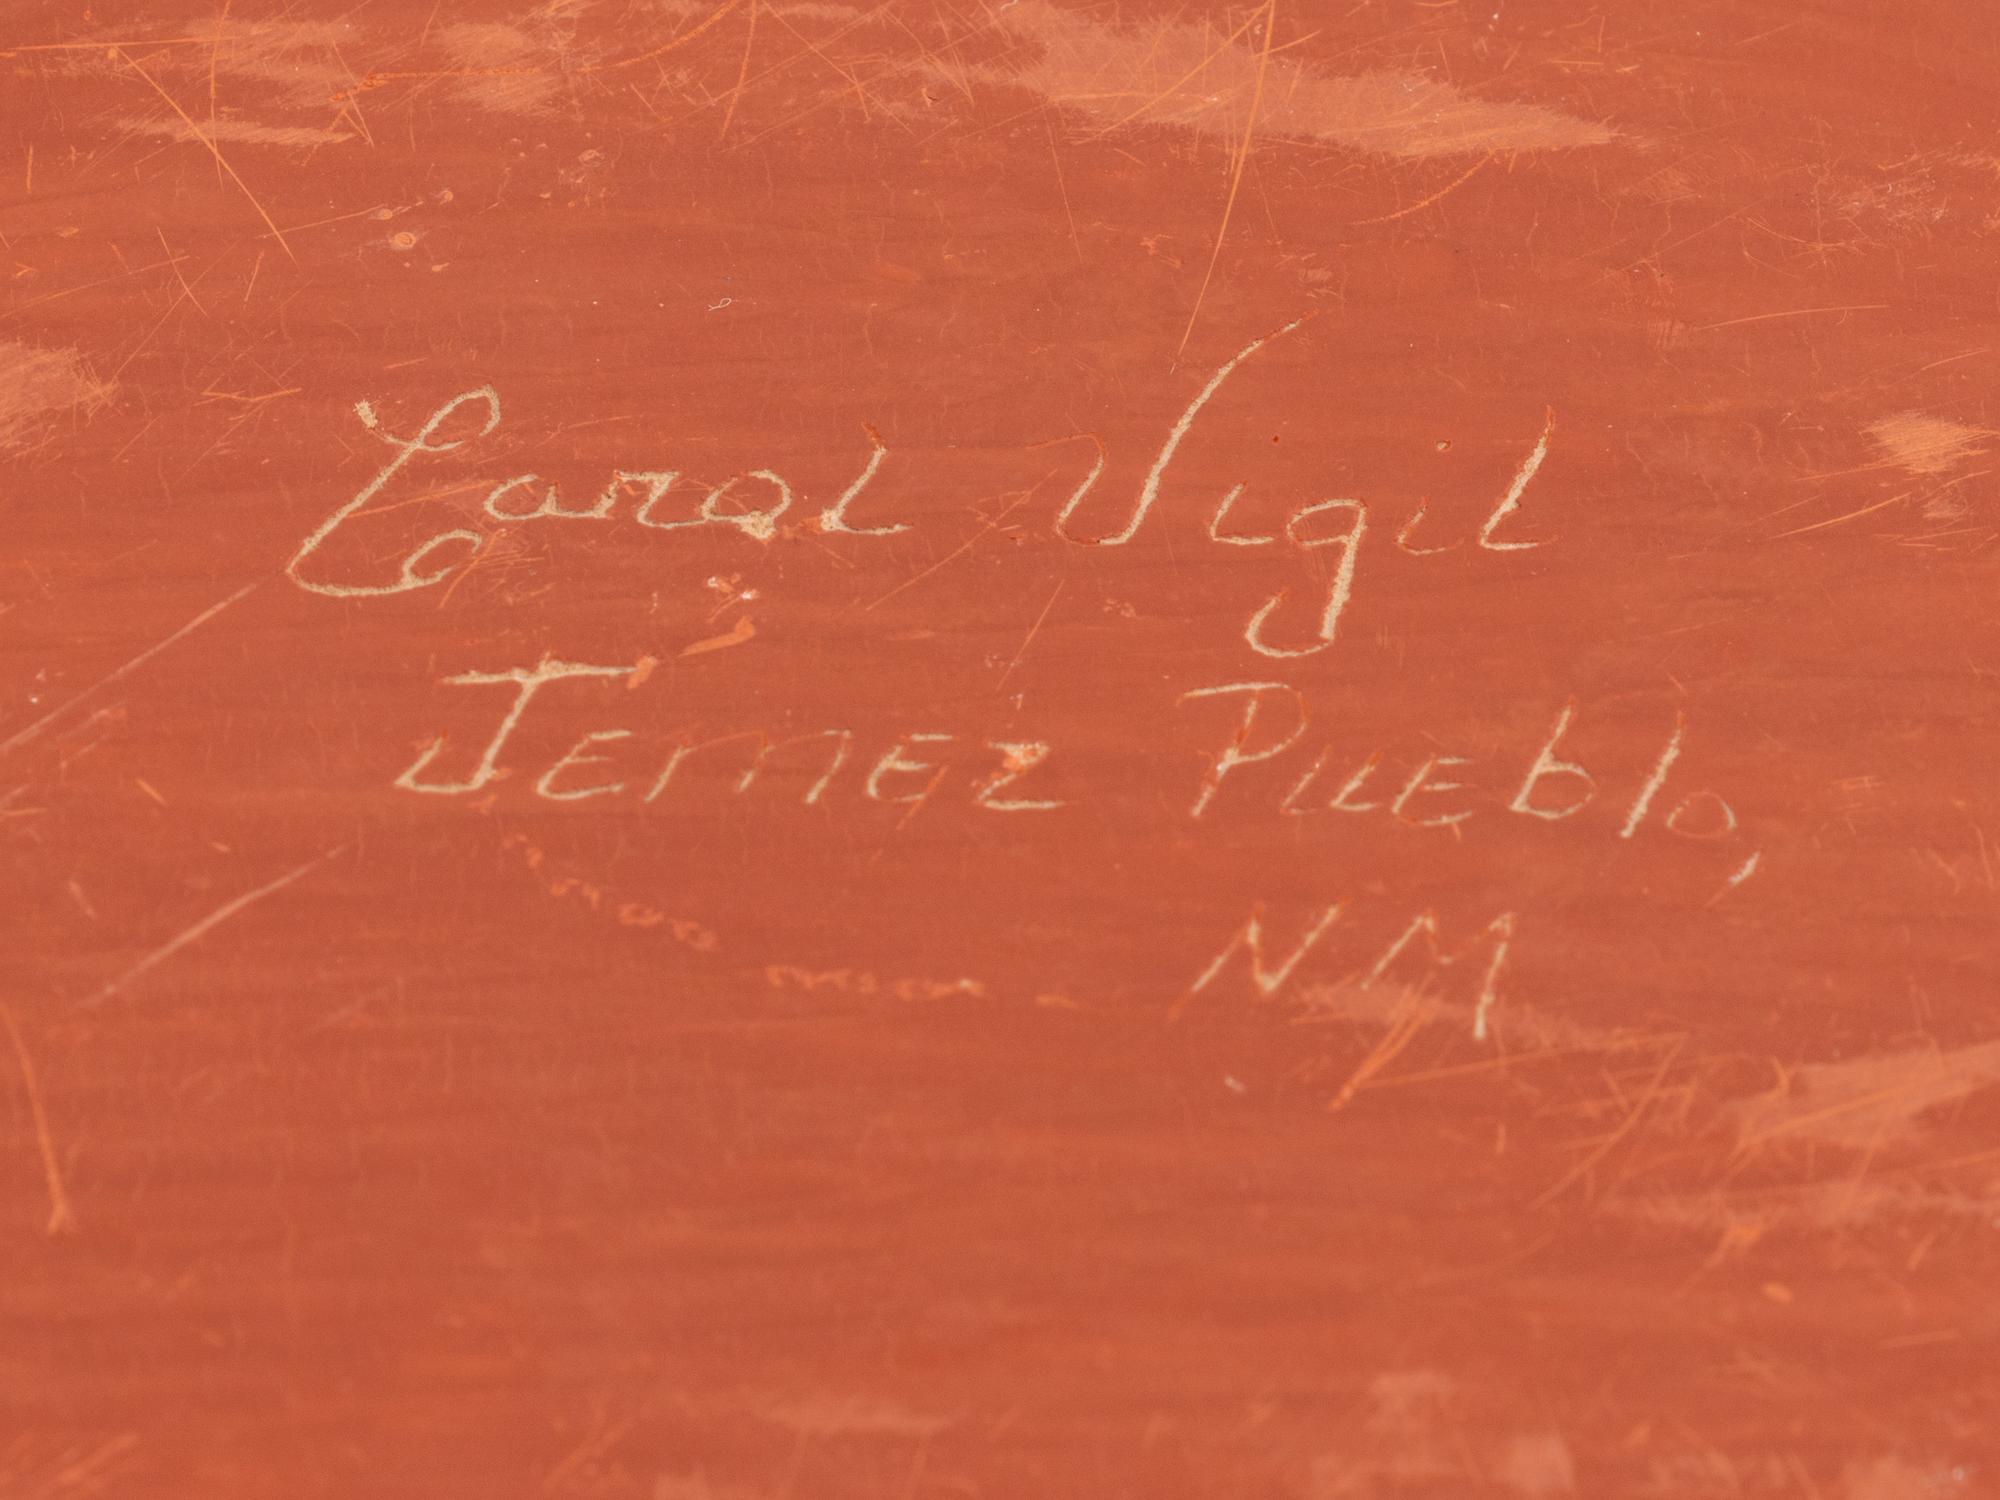 Carol Vigil
Jemez Pueblo,
NM